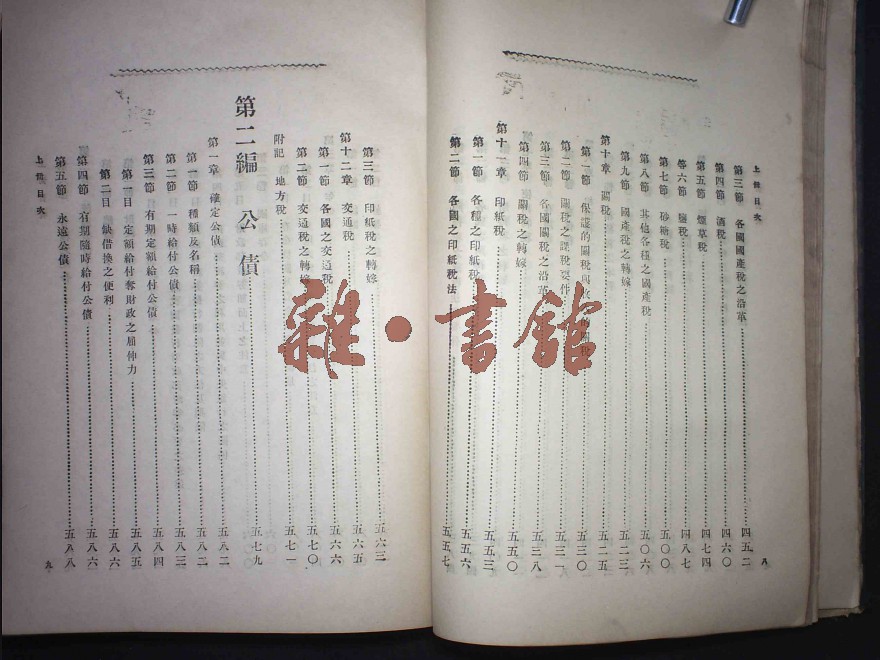 上册目次
第三節 各國國產稅之沿革 四五二
第四節 酒稅 四六〇
第五節 煙草稅 四七四
第六節 鹽稅 四八七
第七節 砂糖稅 五〇〇
第八節 其他各種之國產稅 五〇六
第九節 國產稅之轉嫁 五二三
第十章 關稅 五二五
第一節 保護的關稅 的關稅 五三〇
第二節 關稅之課稅要件 五三一
第三節 各國關稅之沿革 五三八
第四節 關稅之轉嫁 五五〇
第十一章 印紙稅 五五三
第一節 各種之印紙稅 五五六
第二節 各國之印紙稅法 五五七
八
第三節 印紙稅之轉嫁 五六三
第十二章 交通稅 五六五
第一節 各國之交通稅 五六六
第二節 交通稅之轉嫁 五七〇
附記 地方稅 五七一
第二編 公債 五七九
第一章 確定公債 五八二
第一節 種類及名稱 五八二
第二節 一時給付公債 五八三
第三節 有期定額給付公債 五八四
第一目 定額給付奪財政之屈伸力 五八五
第二目 缺借換之便利 五八六
第四節 有期隨時給付公債 五八六
第五節 永遠公債 五八八
上册目次
九
雜·書館